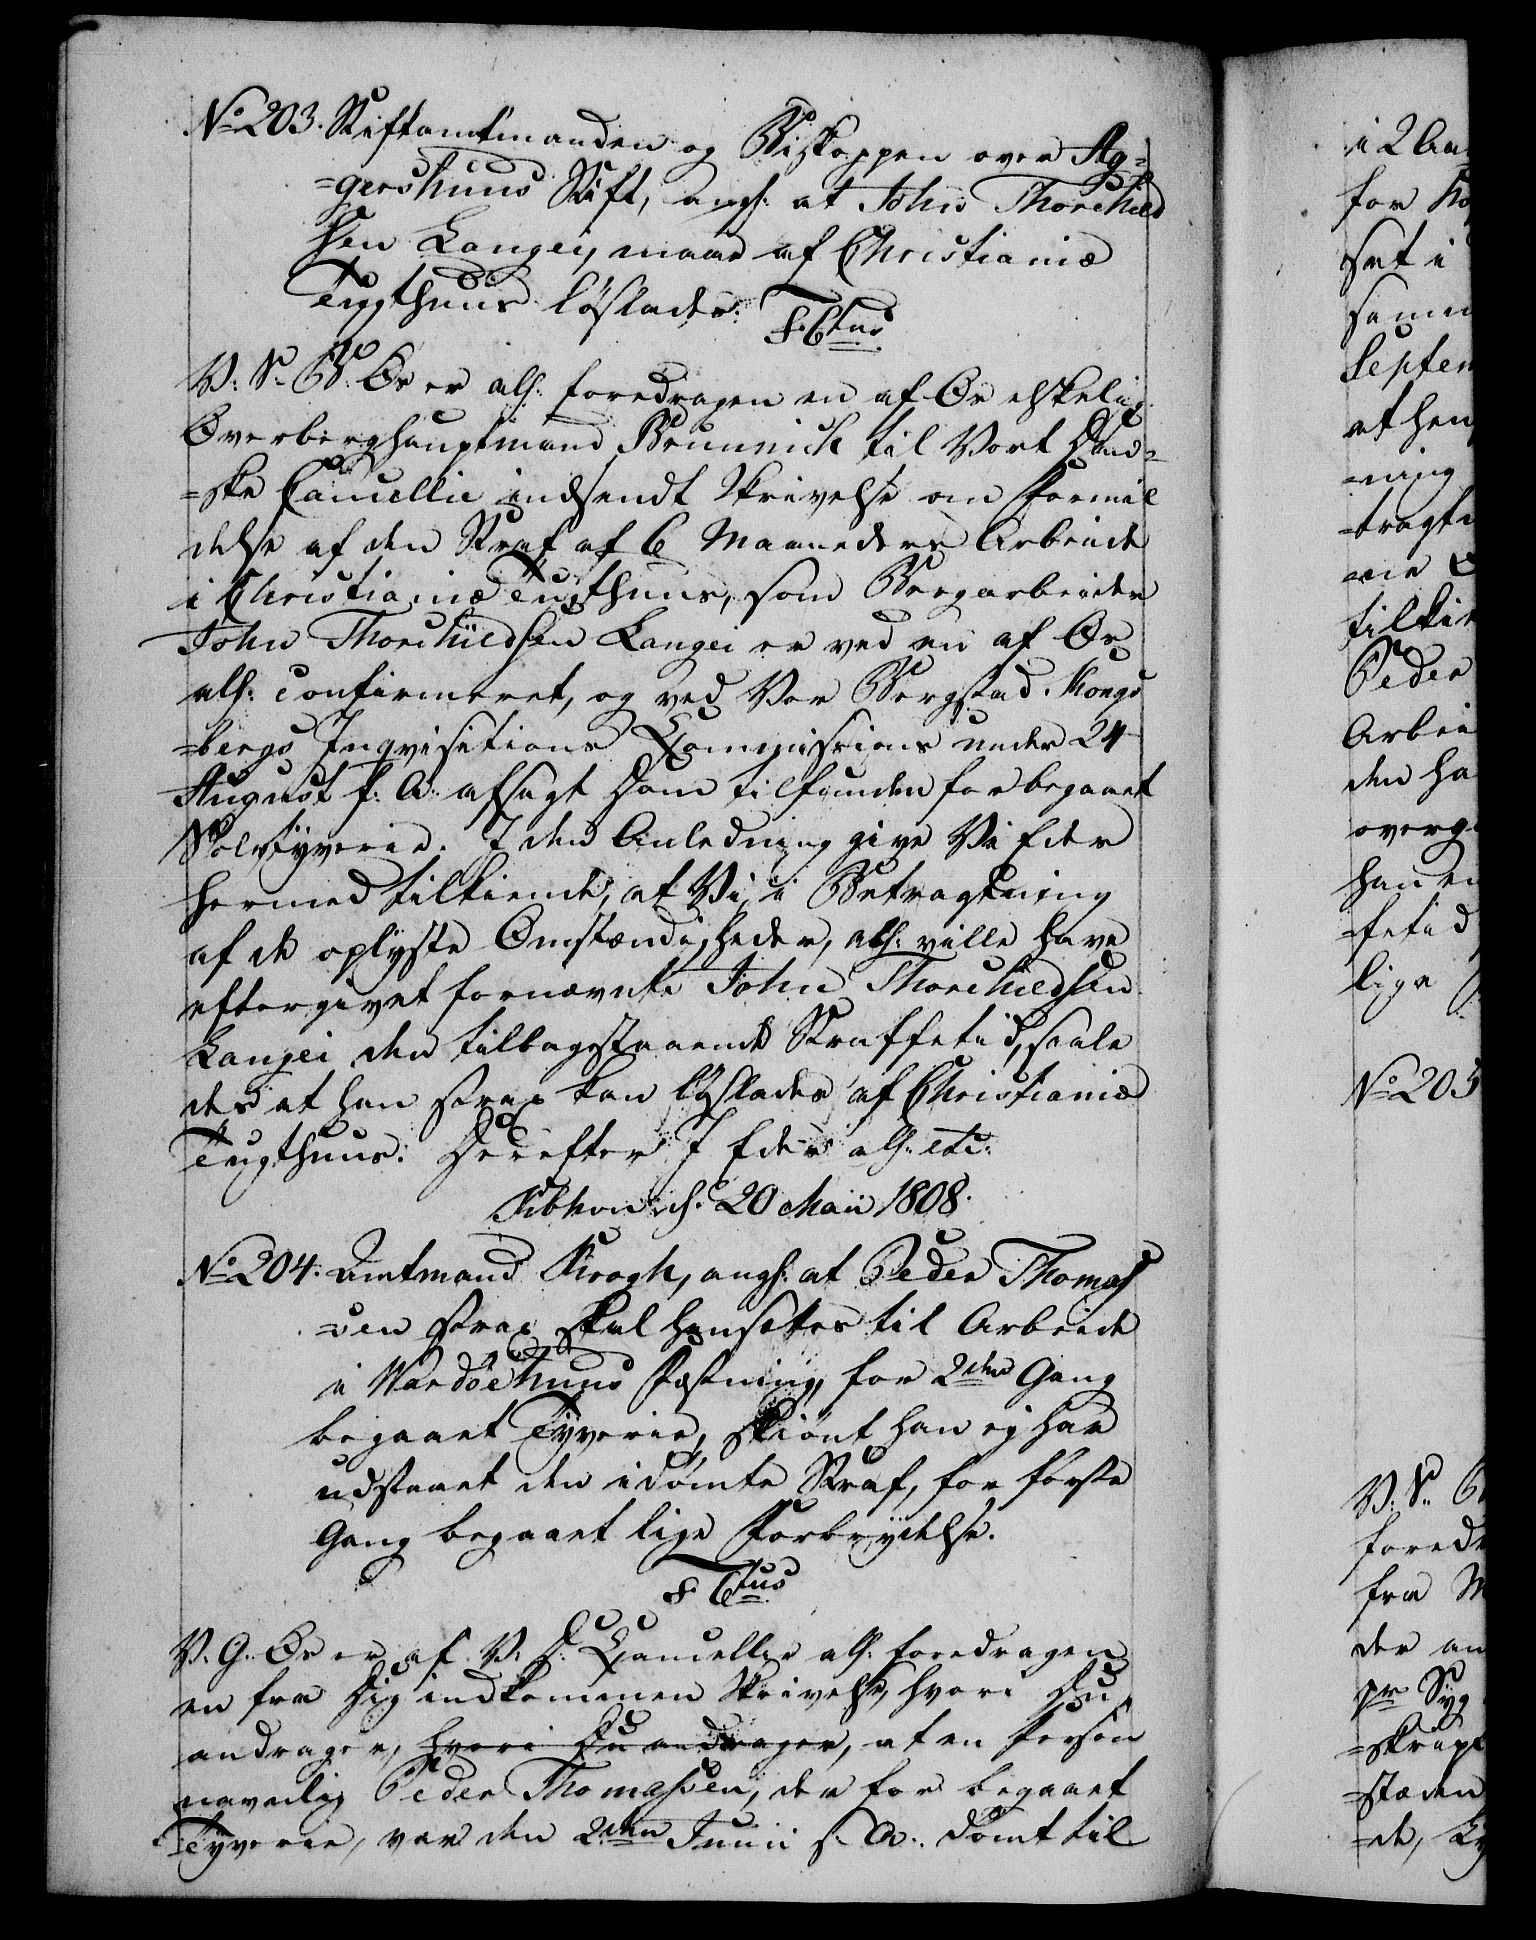 No 203. Stiftamtmanden og Biskoppen over Ag-
=gershuus Stift, angl: at John Thorchild
sen Langei, maae af Christianiæ
Tugthuus løslades.
F. 6tus
V: S. B. Os er all: foredragen en af Os elskelig
Overberghauptmand Brünnich til Vort Dan-
=ske Cancellie indsendt Skrivelse om Formil
delse af den Straf af 6 Maaneders Arbeide
i Christianiæ Tugthuus, som Bergarbeider
John Thorchildsen Langei er ved en af Os
all: confirmeret, og ved Vor Bergstad Kongs
=bergs Inqvisitions Kommissions under 24
August f: A: afsagt Dom tilfunden for begaaet
Sølvtyverie. I den Anledning give Vi Eder
hermed tilkiende, at Vi, i Betragtning
af de oplyste Omstændigheder, all: ville have
eftergivet fornævnte John Thorchildsen
Langei den tilbagestaaende Straffetid, saale
des at han strax kan løslades af Christianiæ
Tugthuus. Derefter I Eder all: etc:
Kibhvn d. 20 Maii 1808.
No 204. Amtmand Krogh, angl: at Peder Thomas
=sen strax skal hensættes til Arbeide
i Wardöehuus Fæstning, for 2den Gang
begaaet Tyverie, skiønt han ej har
udstaaet den idømte Straf, for første
Gang begaaet lige Forbrydelse.
F. 6tus
V. G. Os er af V. D. Cancellie all: foredragen
en fra Dig indkommen Skrivelse, hvori Du
andrager, hvori Du andrager, at en Person
navnlig Peder Thomassen, der for begaaet
Tyverie, var den 2den Junii f. A. dømt til
i 2 Aa
for
sat i
samm
Septem
at hen
=ning
=tragtn
tilkie
Peder
Arbei
den ha
overg
han en
=fetid
lige
No 205
V. S.
foredr
fra
der an
pr Syg
=skript
=stæden
=de,